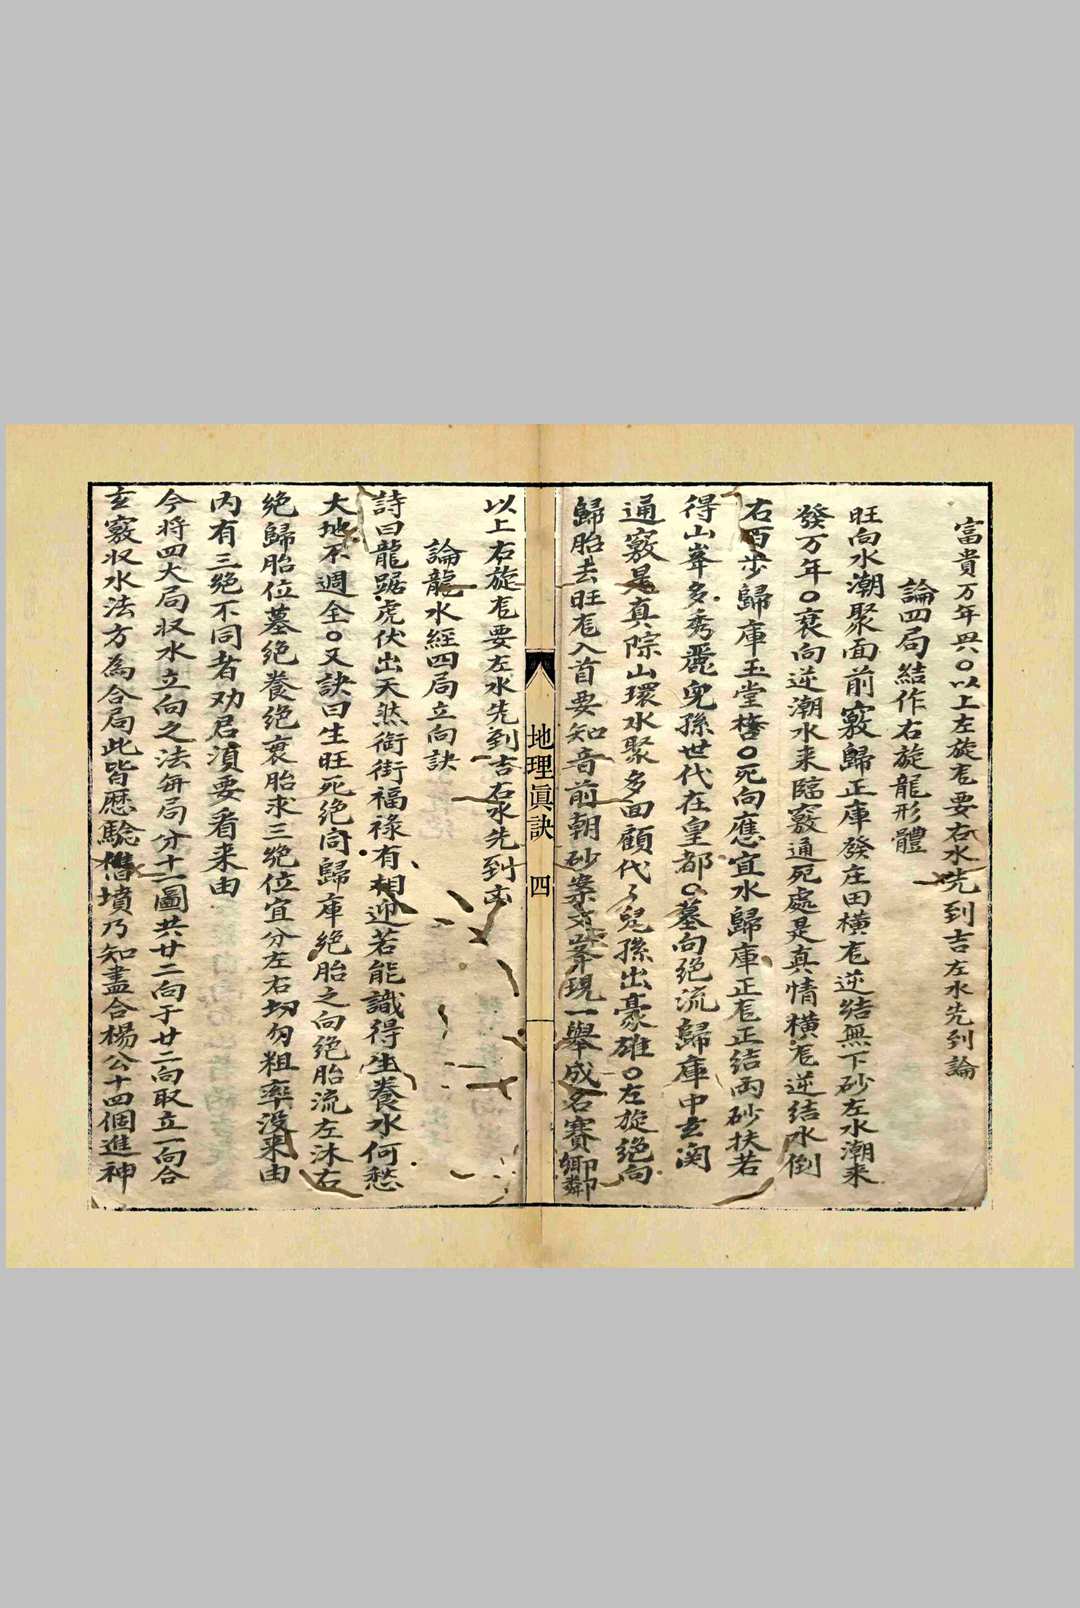 富貴万年興〇以上左旋龙要右水先到吉左水先到論
論四局結作右旋龍形體
旺向水潮聚面前竅歸正庫發庄田橫龙逆結無下砂左水潮来
發万年〇衰向逆潮水来臨竅通死處是真情橫龙逆结水倒
右百步歸庫玉堂〇死向應宜水歸庫正龙正结両砂扶若
得山峯多秀麗兒孫世代在皇都〇墓向绝流歸庫中玄関
通竅是真踪山環水聚多回顧代々兒孫出豪雄〇左旋绝向
歸胎去旺龙入首要知音前朝砂案文峯現一舉成名賽卿鄰
地理真訣 四
以上右旋龙要左水先到吉右水先到玄
論龍水經四局立向訣
詩曰龍踞虎伏出天然衙街福禄有相迎若能識得生養水何愁
大地不週全〇又訣曰生旺死绝向歸庫绝胎之向绝胎流左沐右
绝歸胎位墓绝養绝衰胎求三绝位宜分左右切勿粗率没来由
内有三绝不同者劝君湏要看来由
今将四大局収水立向之法每局分十二圖共廿二向于廿二向取立一向合
玄竅収水法方為合局此皆歴驗舊墳乃知盡合楊公十四個進神